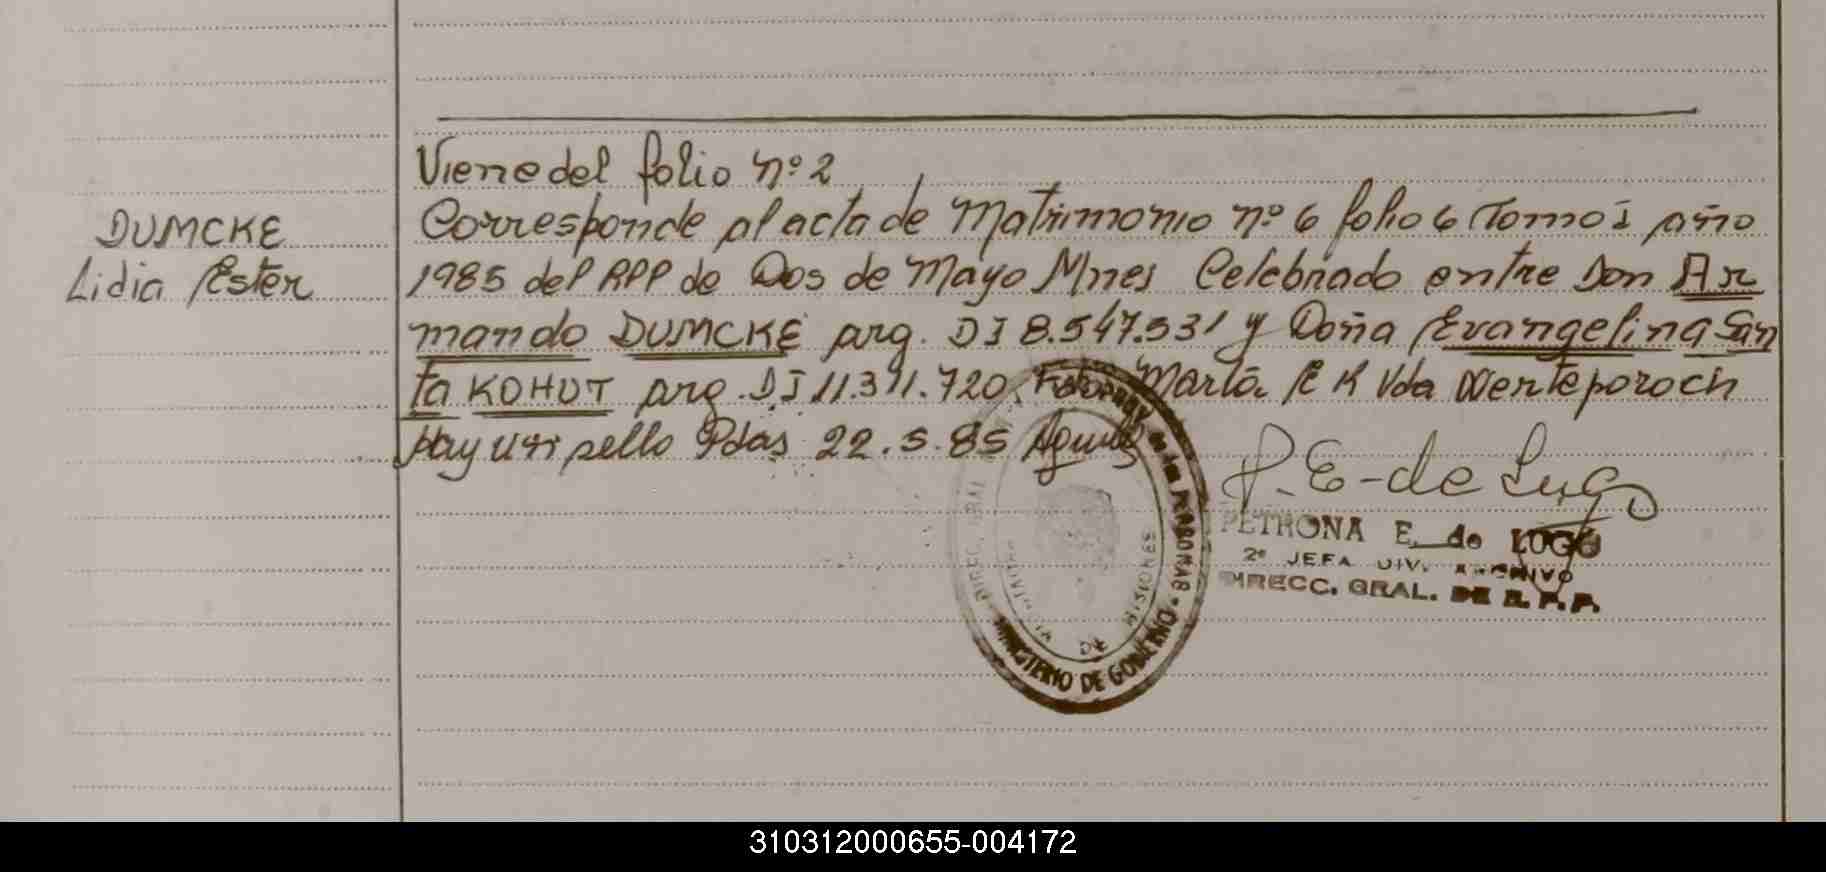 Viene del folio nº 2
DUMCKE
Lidia Ester
Corresponde al acta de Matrimonio nº 6 folio 6 Tomo 1 año
1985 del RPP de Dos de Mayo Mnes Celebrado entre Don Ar
mando DUMCKE arg. DI 8.547.531 y Doña Evangelina San
ta KOHUT arg. DI 11.311.720. Fdo Marta E K Vda Werteporoch
Hay un sello Pdas 22.5.85
P. E. de Lugo
PETRONA E. de LUGO
2º JEFA DIV. ARCHIVO
DIRECC. GRAL. DE R. P. P.
DIREC. GRAL de las PERSONAS
MINISTERIO DE GOBIERNO
DE MISIONES
310312000655-004172